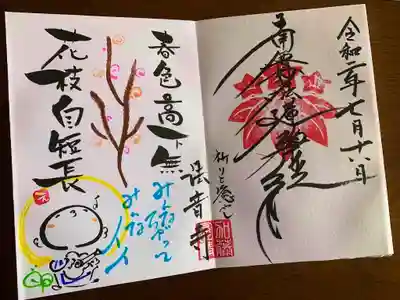 令和二年七月十六日
南無妙法蓮華経
法音寺
春色高下無
花枝自短長
みんなちがって
みんなイイ